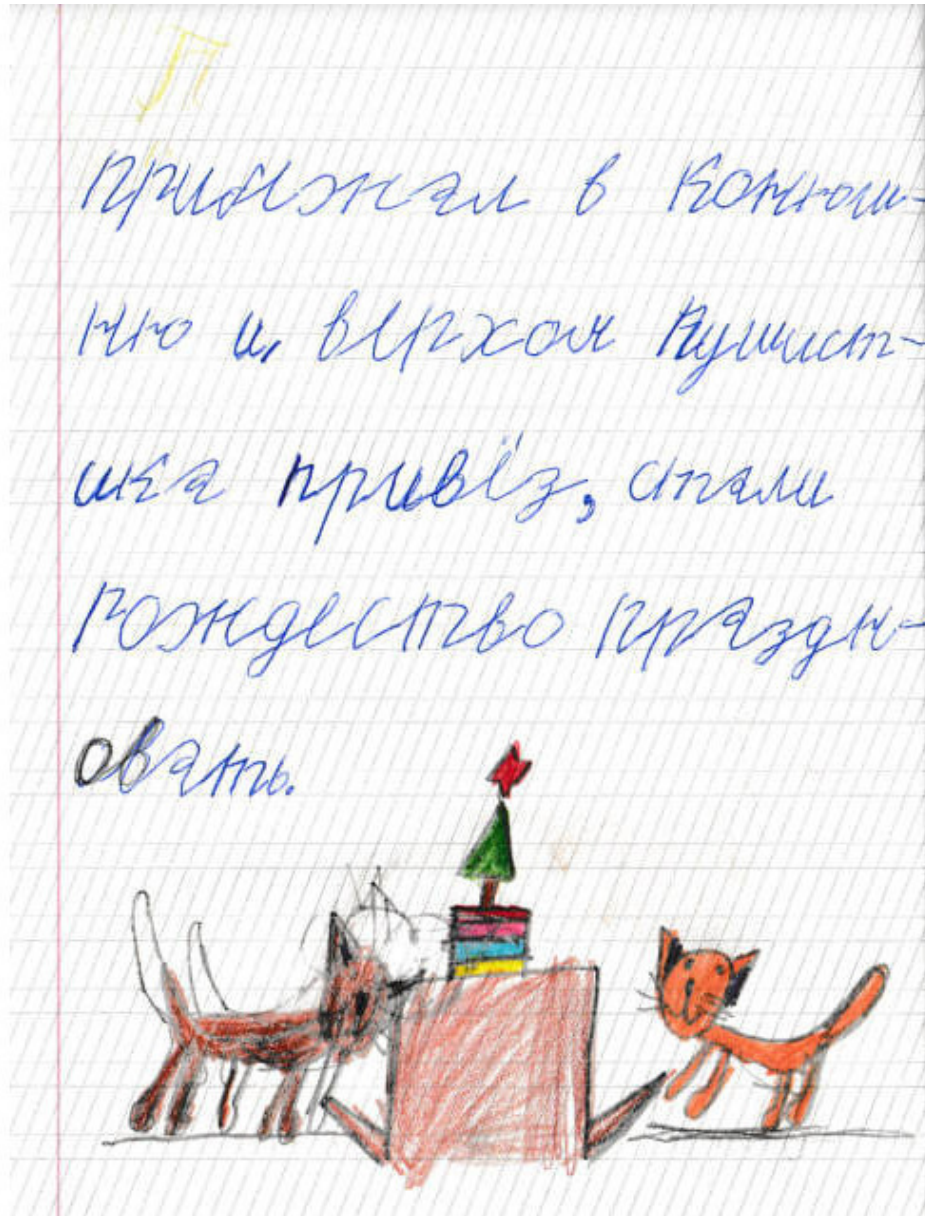 П
прийжал в конюш-
ню и, верхом Пушист-
шка привёз, стали
рождество праздн-
овать.